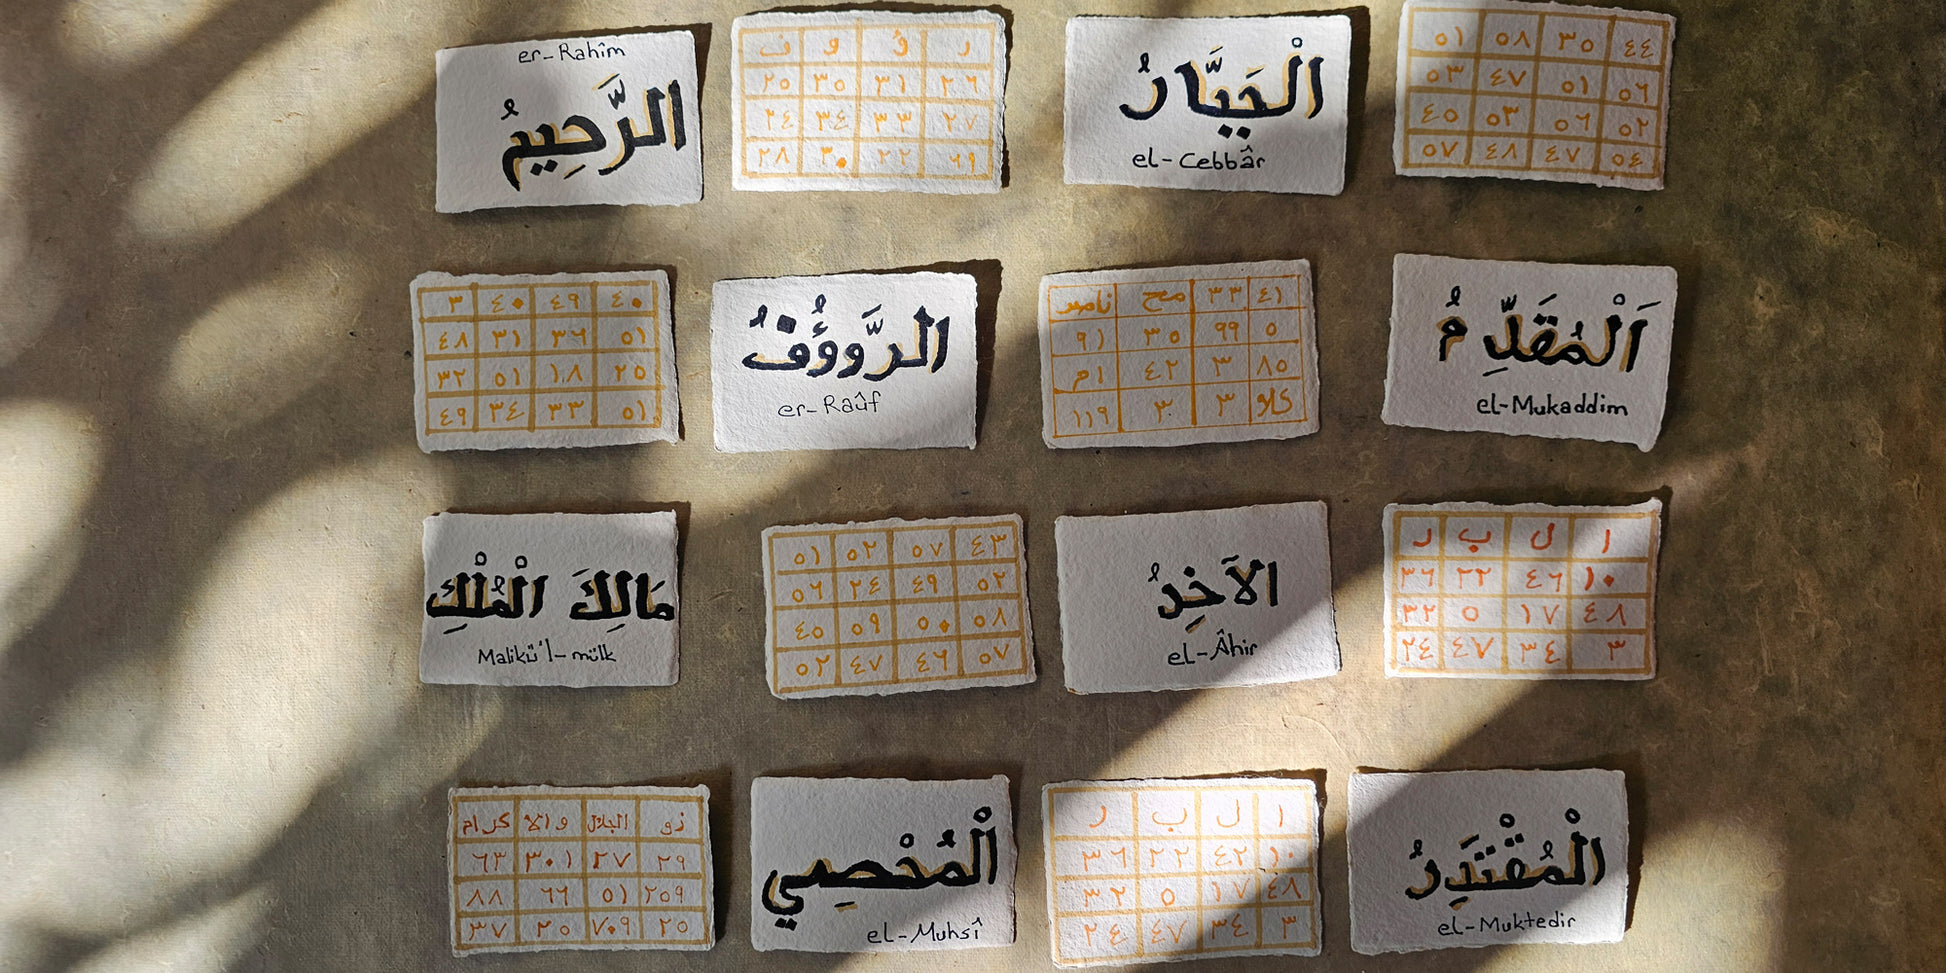 er-Rahîm
الرَّحِيمُ
ر ؤ و ف
٢٦ ٣١ ٣٥ ٢٥
٢٧ ٣٣ ٣٤ ٢٤
٢٩ ٢٢ ٣٠ ٢٨
الْجَبَّارُ
el-Cebbâr
٤٤ ٣٥ ٥٨ ٥١
٥٦ ٥١ ٤٧ ٥٣
٥٢ ٥٦ ٥٣ ٤٥
٥٤ ٤٧ ٤٨ ٥٧
٤٠ ٤٩ ٤٠ ٣
٥١ ٣٦ ٣١ ٤٨
٢٥ ١٨ ٥١ ٣٢
٥١ ٣٣ ٣٤ ٤٩
الرَّووُفُ
er-Raûf
٤١ ٣٣
٥ ٩٩ ٣٥ ٩١
٨٥ ٣ ٤٢ ام
٣ ٣ ١١٩
اَلْمُقَدِّمُ
el-Mukaddim
مَالِكَ الْمُلْكِ
Malikü'l-mülk
٤٣ ٥٧ ٥٢ ٥١
٥٢ ٤٩ ٢٤ ٥٦
٥٨ ٥٠ ٥٩ ٤٥
٥٧ ٤٦ ٤٧ ٥٢
الآخِرُ
el-Âhir
ا ل ب ر
١٠ ٤٦ ٢٢ ٣٦
٤٨ ١٧ ٥ ٣٢
٣ ٣٤ ٤٧ ٢٤
ذو الجلال والا كرام
٢٩ ٢٧ ٣٠١ ٦٣
٢٥٩ ٥١ ٦٦ ٨٨
٢٥ ٧٠٩ ٢٥ ٣٧
الْمُحْصِي
el-Muhsî
ا ل ب ر
١٠ ٤٢ ٢٢ ٣٦
٤٨ ١٧ ٥ ٣٢
٣ ٣٤ ٤٧ ٢٤
الْمُقْتَدِرُ
el-Muktedir